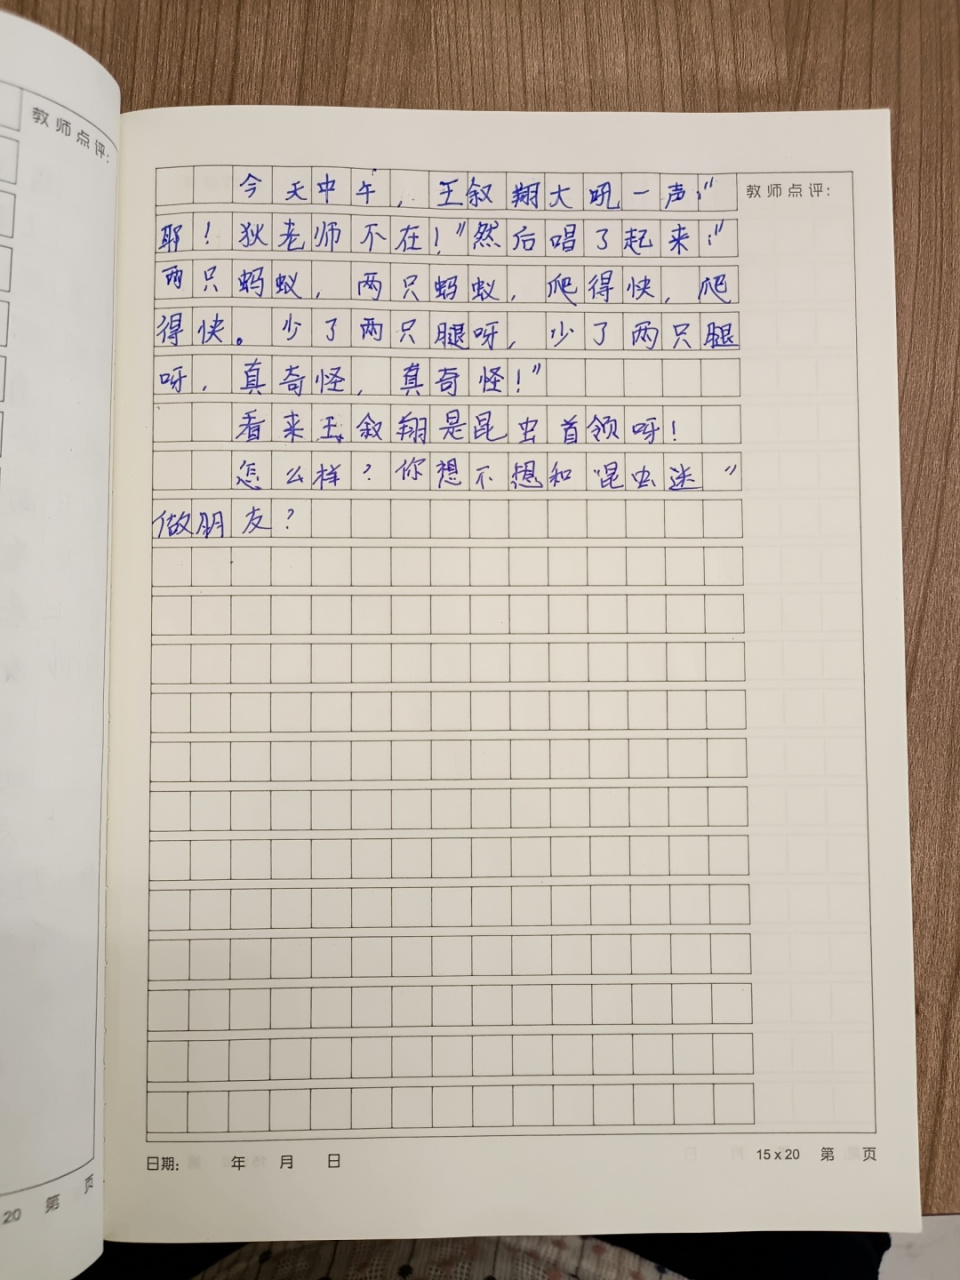 教师点评:
今天中午，王叙翔大吼一声：“
耶！狄老师不在！”然后唱了起来：“
两只蚂蚁，两只蚂蚁，爬得快，爬
得快。少了两只腿呀，少了两只腿
呀，真奇怪，真奇怪！”
看来王叙翔是昆虫首领呀！
怎么样？你想不想和“昆虫迷”
做朋友？
教师点评:
日期: 年 月 日
15x20 第 页
20 第 页